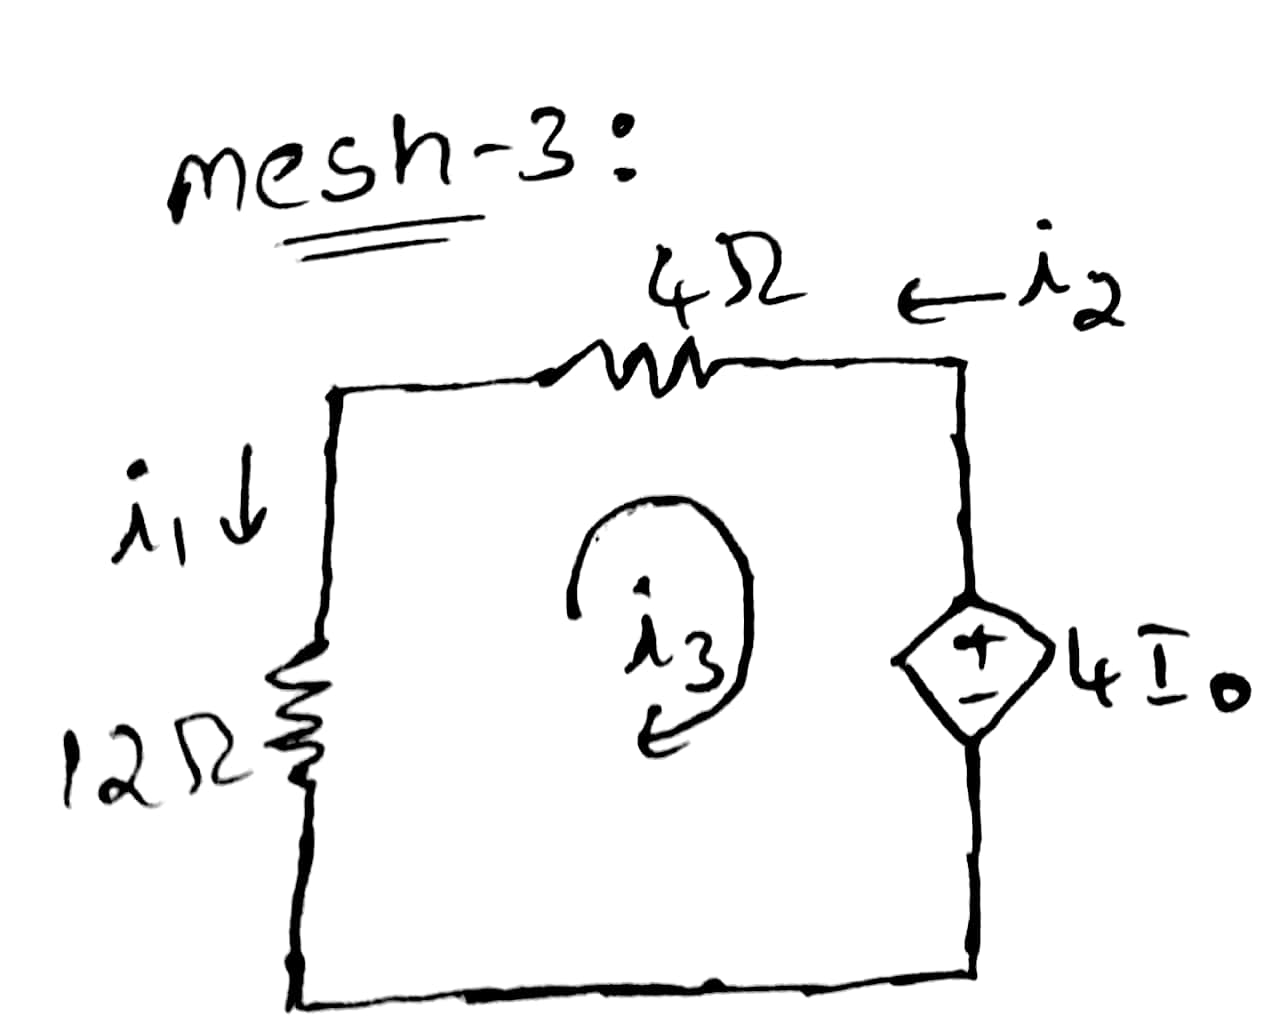 mesh-3:
4Ω
←i₂
i₁↓
i₃
+
-
4I₀
12Ω